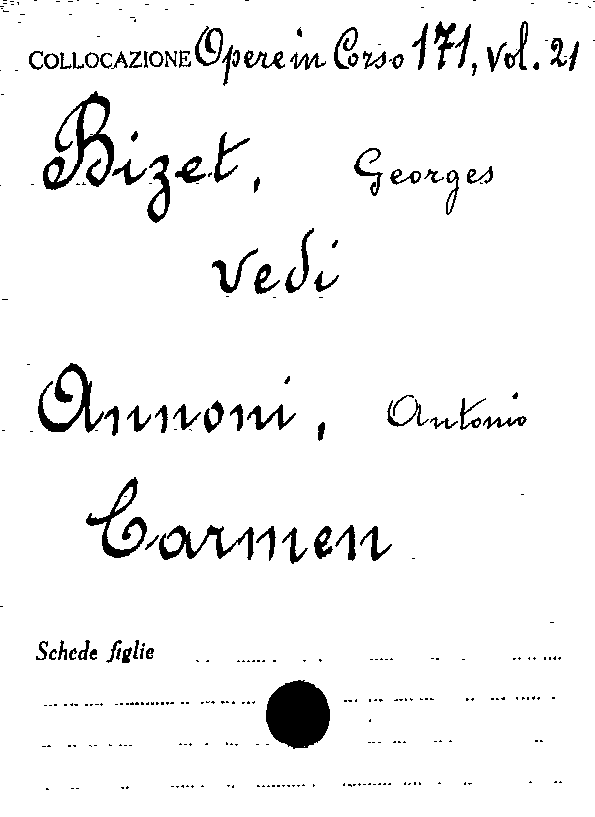 COLLOCAZIONE Opere in Corso 171, vol. 21
Bizet, Georges
Vedi
Annoni, Antonio
Carmen
Schede figlie